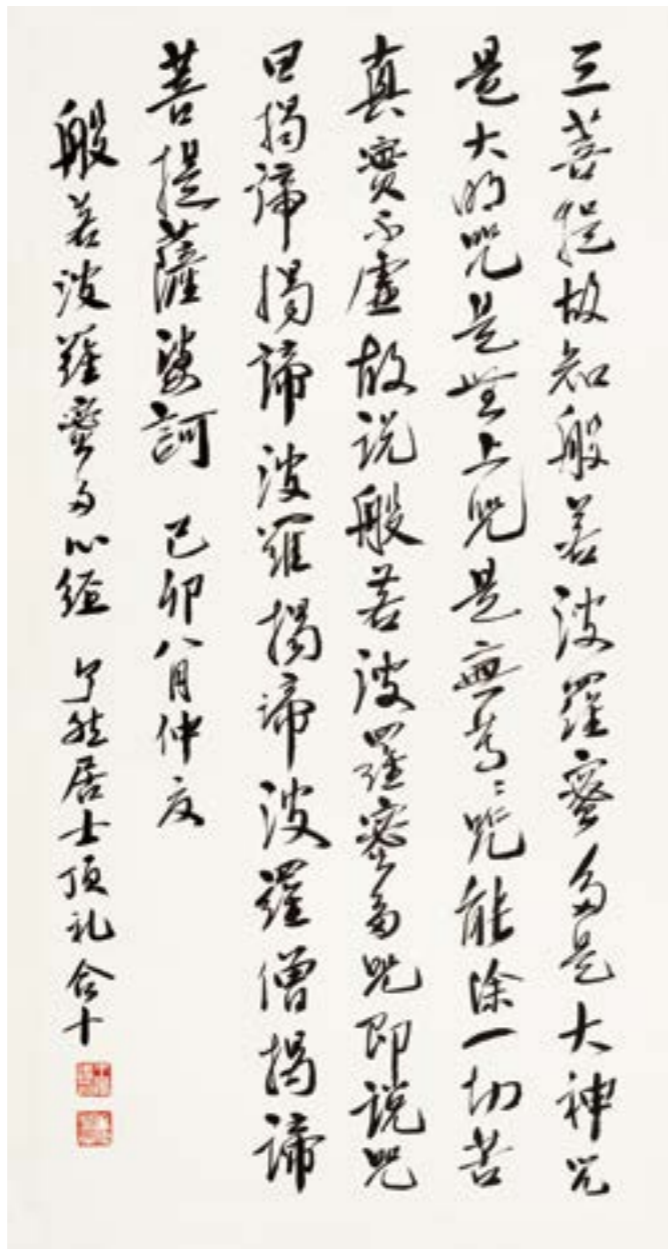 三菩提故知般若波羅蜜多是大神咒
是大明咒是無上咒是無等〻咒能除一切苦
真實不虛故说般若波羅蜜多咒即说咒
曰揭諦揭諦波羅揭諦波羅僧揭諦
菩提薩婆訶 己卯八月仲度
般若波羅蜜多心經 了然居士頂礼合十